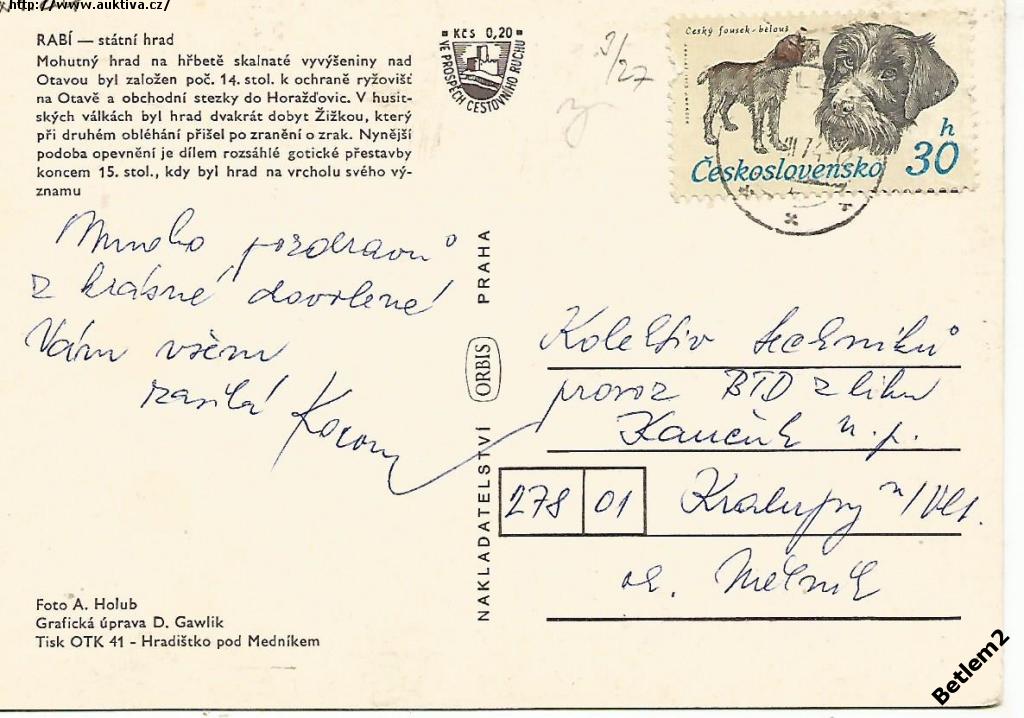 http://www.auktiva.cz/
RABÍ — státní hrad
Mohutný hrad na hřbetě skalnaté vyvýšeniny nad
Otavou byl založen poč. 14. stol. k ochraně ryžovišť
na Otavě a obchodní stezky do Horažďovic. V husit-
ských válkách byl hrad dvakrát dobyt Žižkou, který
při druhém obléhání přišel po zranění o zrak. Nynější
podoba opevnění je dílem rozsáhlé gotické přestavby
koncem 15. stol., kdy byl hrad na vrcholu svého vý-
znamu
Kčs 0,20
VE PROSPĚCH CESTOVNÍHO RUCHU
Český fousek - bělouš
h
30
Československo
Mnoho pozdravů
z krásné dovolené
Vám všem
zasílá
NAKLADATELSTVÍ ORBIS PRAHA
Kolektiv techniků
provoz BTD z libn
Kaučuk n. p.
278 01 Kralupy n/Vlt.
ok. Mělník
Foto A. Holub
Grafická úprava D. Gawlik
Tisk OTK 41 - Hradištko pod Medníkem
Betlem2